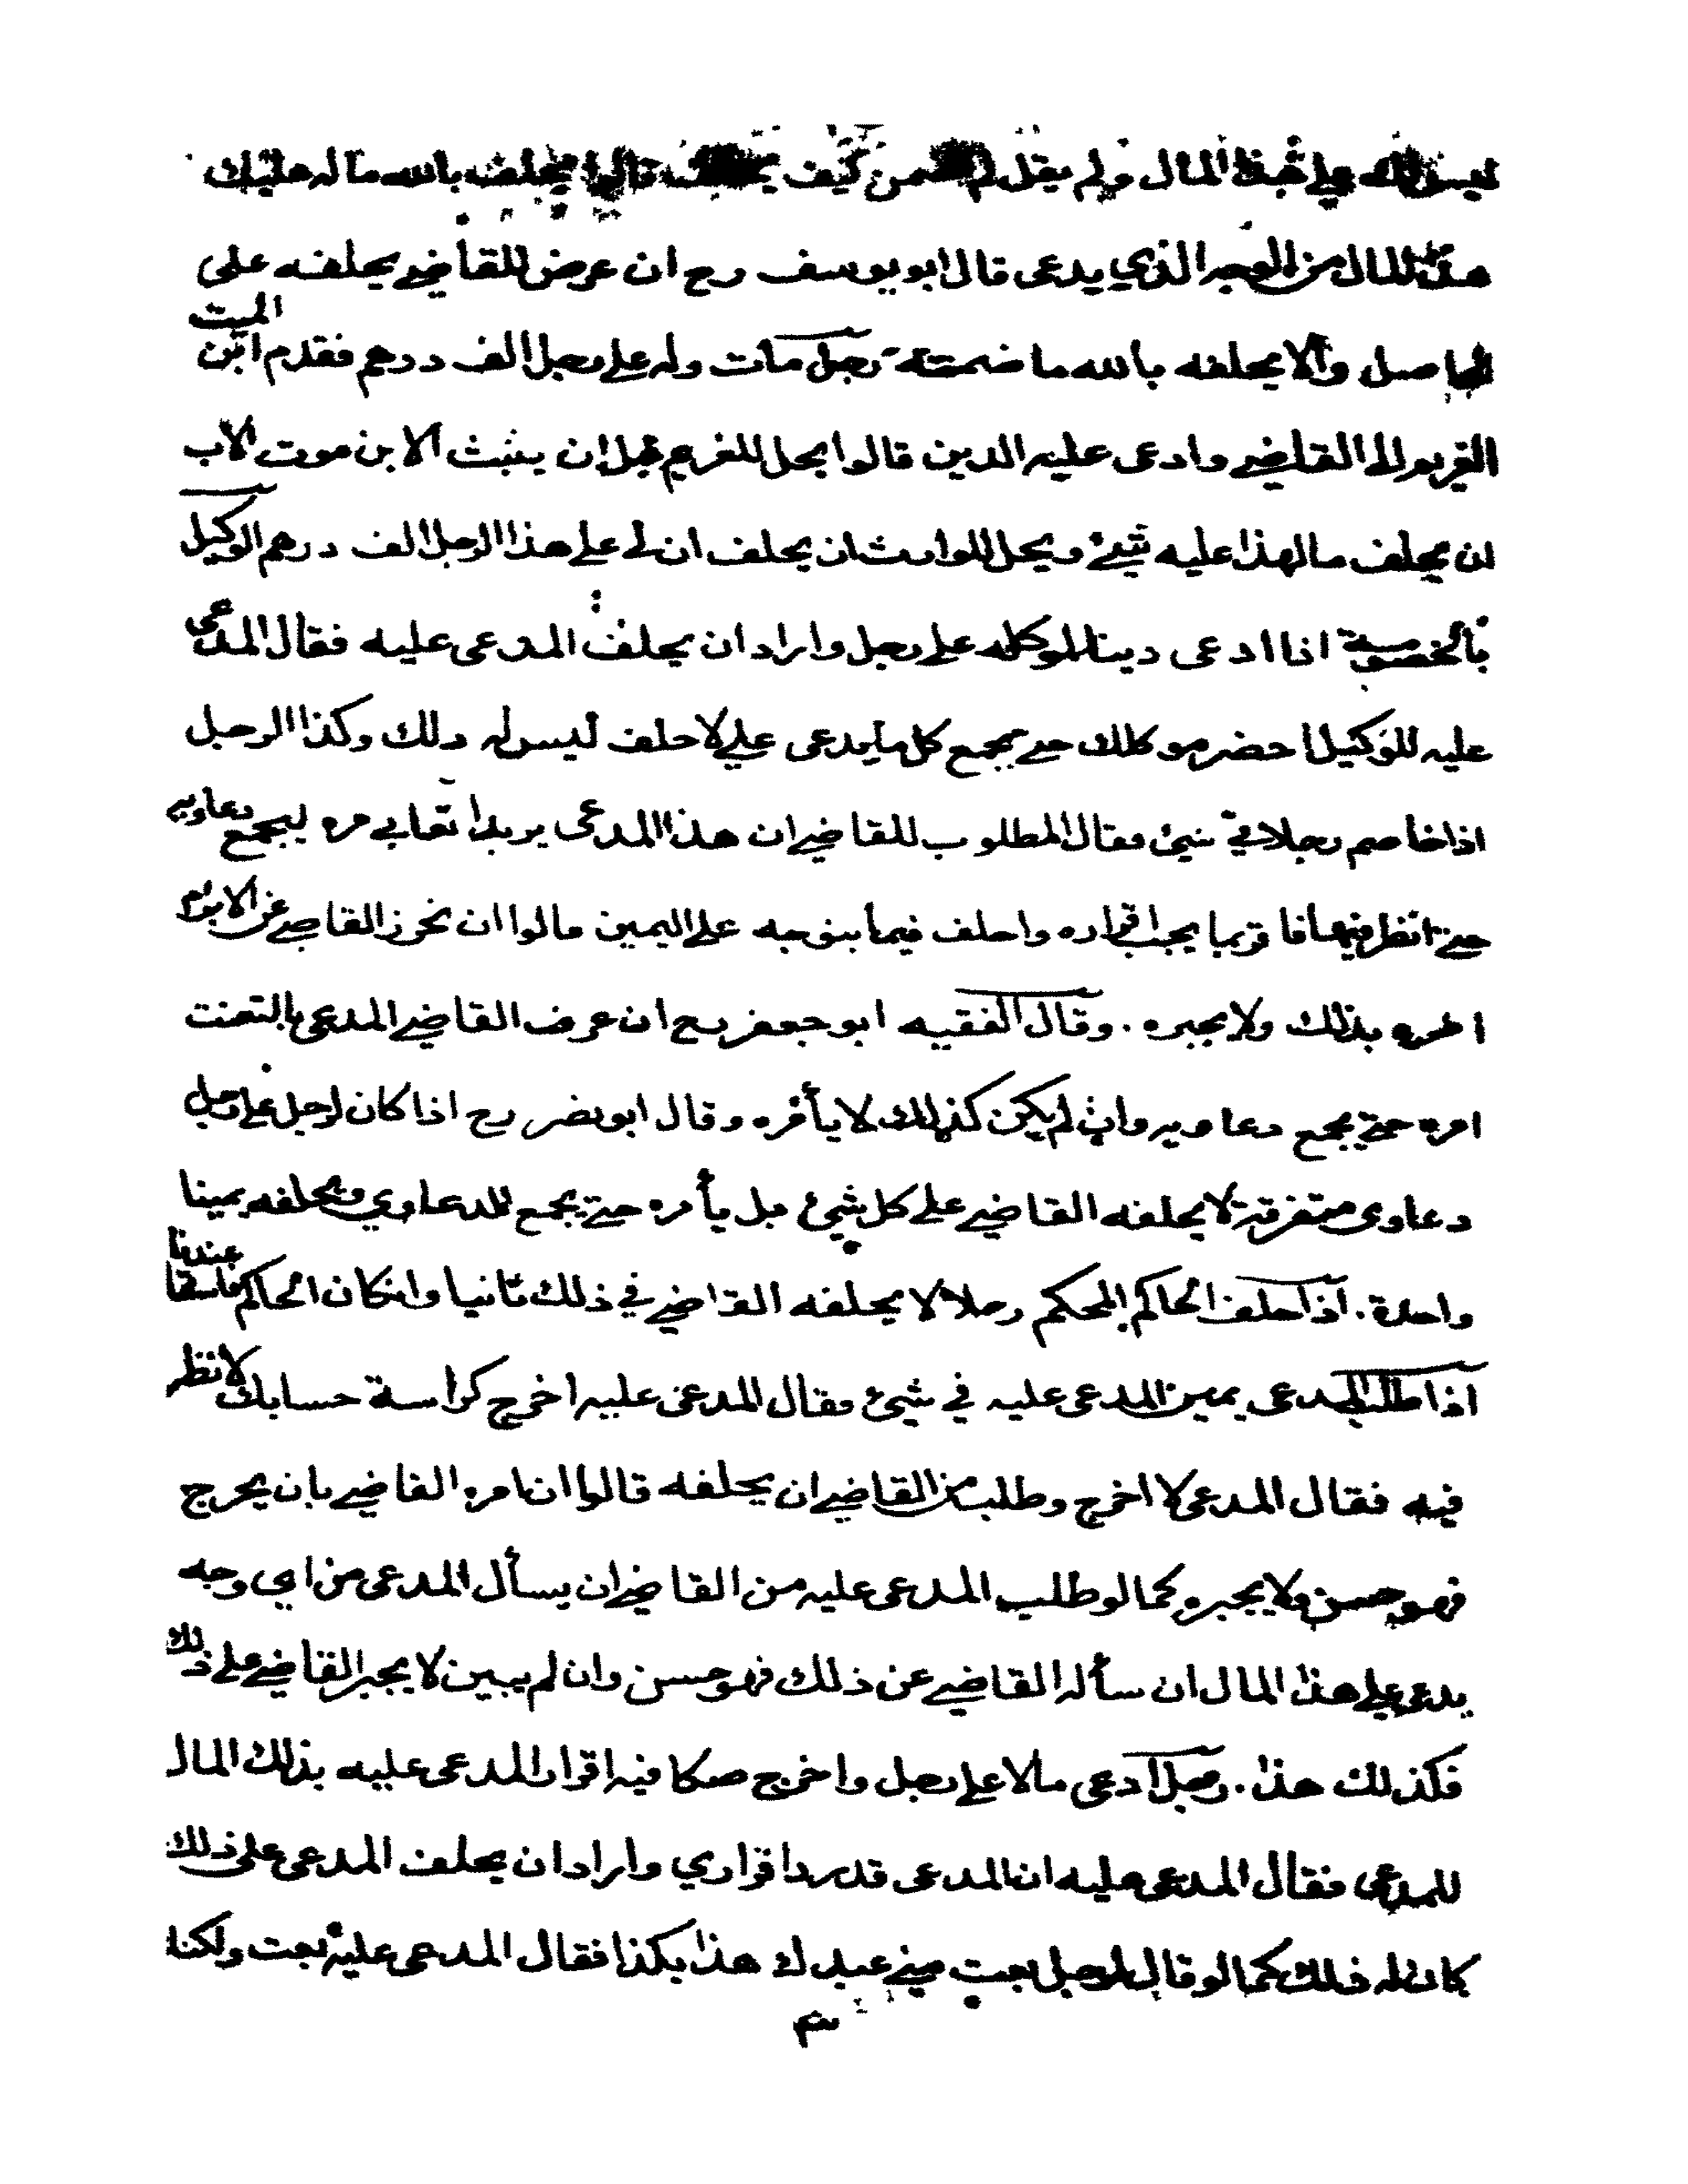 ليس له علي هذا المال ولم يقل لم اضمن كيف يحلف قالوا يحلف بالله ما له عليك
هذا المال من الوجه الذي يدعى قال ابو يوسف رح ان عرض للقاضي يحلفه على
الحاصل والا يحلفه بالله ما ضمنت رجل مات وله على رجل الف درهم فقدم ابن الميت
الغريم الى القاضي وادعى عليه الدين قالوا يحل للغريم قبل ان يثبت الابن موت الاب
ان يحلف ما لهذا عليه شيئ ويحل للوارث ان يحلف ان لي على هذا الرجل الف درهم الوكيل
بالخصومة اذا ادعى دينا لموكله على رجل واراد ان يحلف المدعى عليه فقال المدعى
عليه للوكيل احضر موكلك حتى يجمع كل ما يدعى علي لاحلف ليس له ذلك وكذا الرجل
اذا خاصم رجلا في شيئ فقال المطلوب للقاضي ان هذا المدعى يريد اتعابي مره ليجمع دعاويه
حتى انظر فيها فاقر بما يجب اقراره واحلف فيما يتوجه علي اليمين قالوا ان القاضي
امره بذلك ولا يجبره . وقال الفقيه ابو جعفر رح ان عرف القاضي المدعى بالتعنت
امره حتى يجمع دعاويه وان لم يكن كذلك لا يأمره وقال ابو نصر رح اذا كان لرجل على رجل
دعاوى متفرقة لا يحلفه القاضي على كل شيئ بل يأمره حتى يجمع الدعاوي ويحلفه يمينا
واحدة . اذا حلف الحاكم المحكم رجلا لا يحلفه القاضي في ذلك ثانيا وان كان الحاكم فاسقا عندنا
اذا طلب المدعى يمين المدعى عليه في شيئ فقال المدعى عليه اخرج كراسة حسابك لانظر
فيه فقال المدعى لا اخرج وطلب من القاضي ان يحلفه قالوا ان امره القاضي بان يخرج
فهو حسن ولا يجبره كما لو طلب المدعى عليه من القاضي ان يسأل المدعى من اي وجه
يدعى علي هذا المال ان سأله القاضي عن ذلك فهو حسن وان لم يبين لا يجبر القاضي على ذلك
فكذلك هذا . رجل ادعى مالا على رجل واخرج صكا فيه اقرار المدعى عليه بذلك المال
للمدعى فقال المدعى عليه ان المدعى قد رد اقراري واراد ان يحلف المدعى على ذلك
كان له ذلك كما لو قال لرجل بعت مني عبدك هذا بكذا فقال المدعى عليه بعت ولكنك